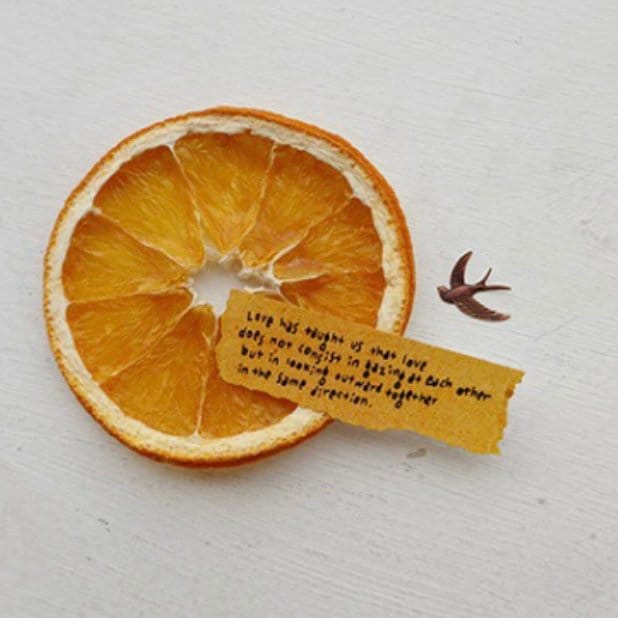 Love has taught us that love
does not consist in gazing at each other
but in looking outward together
in the same direction.